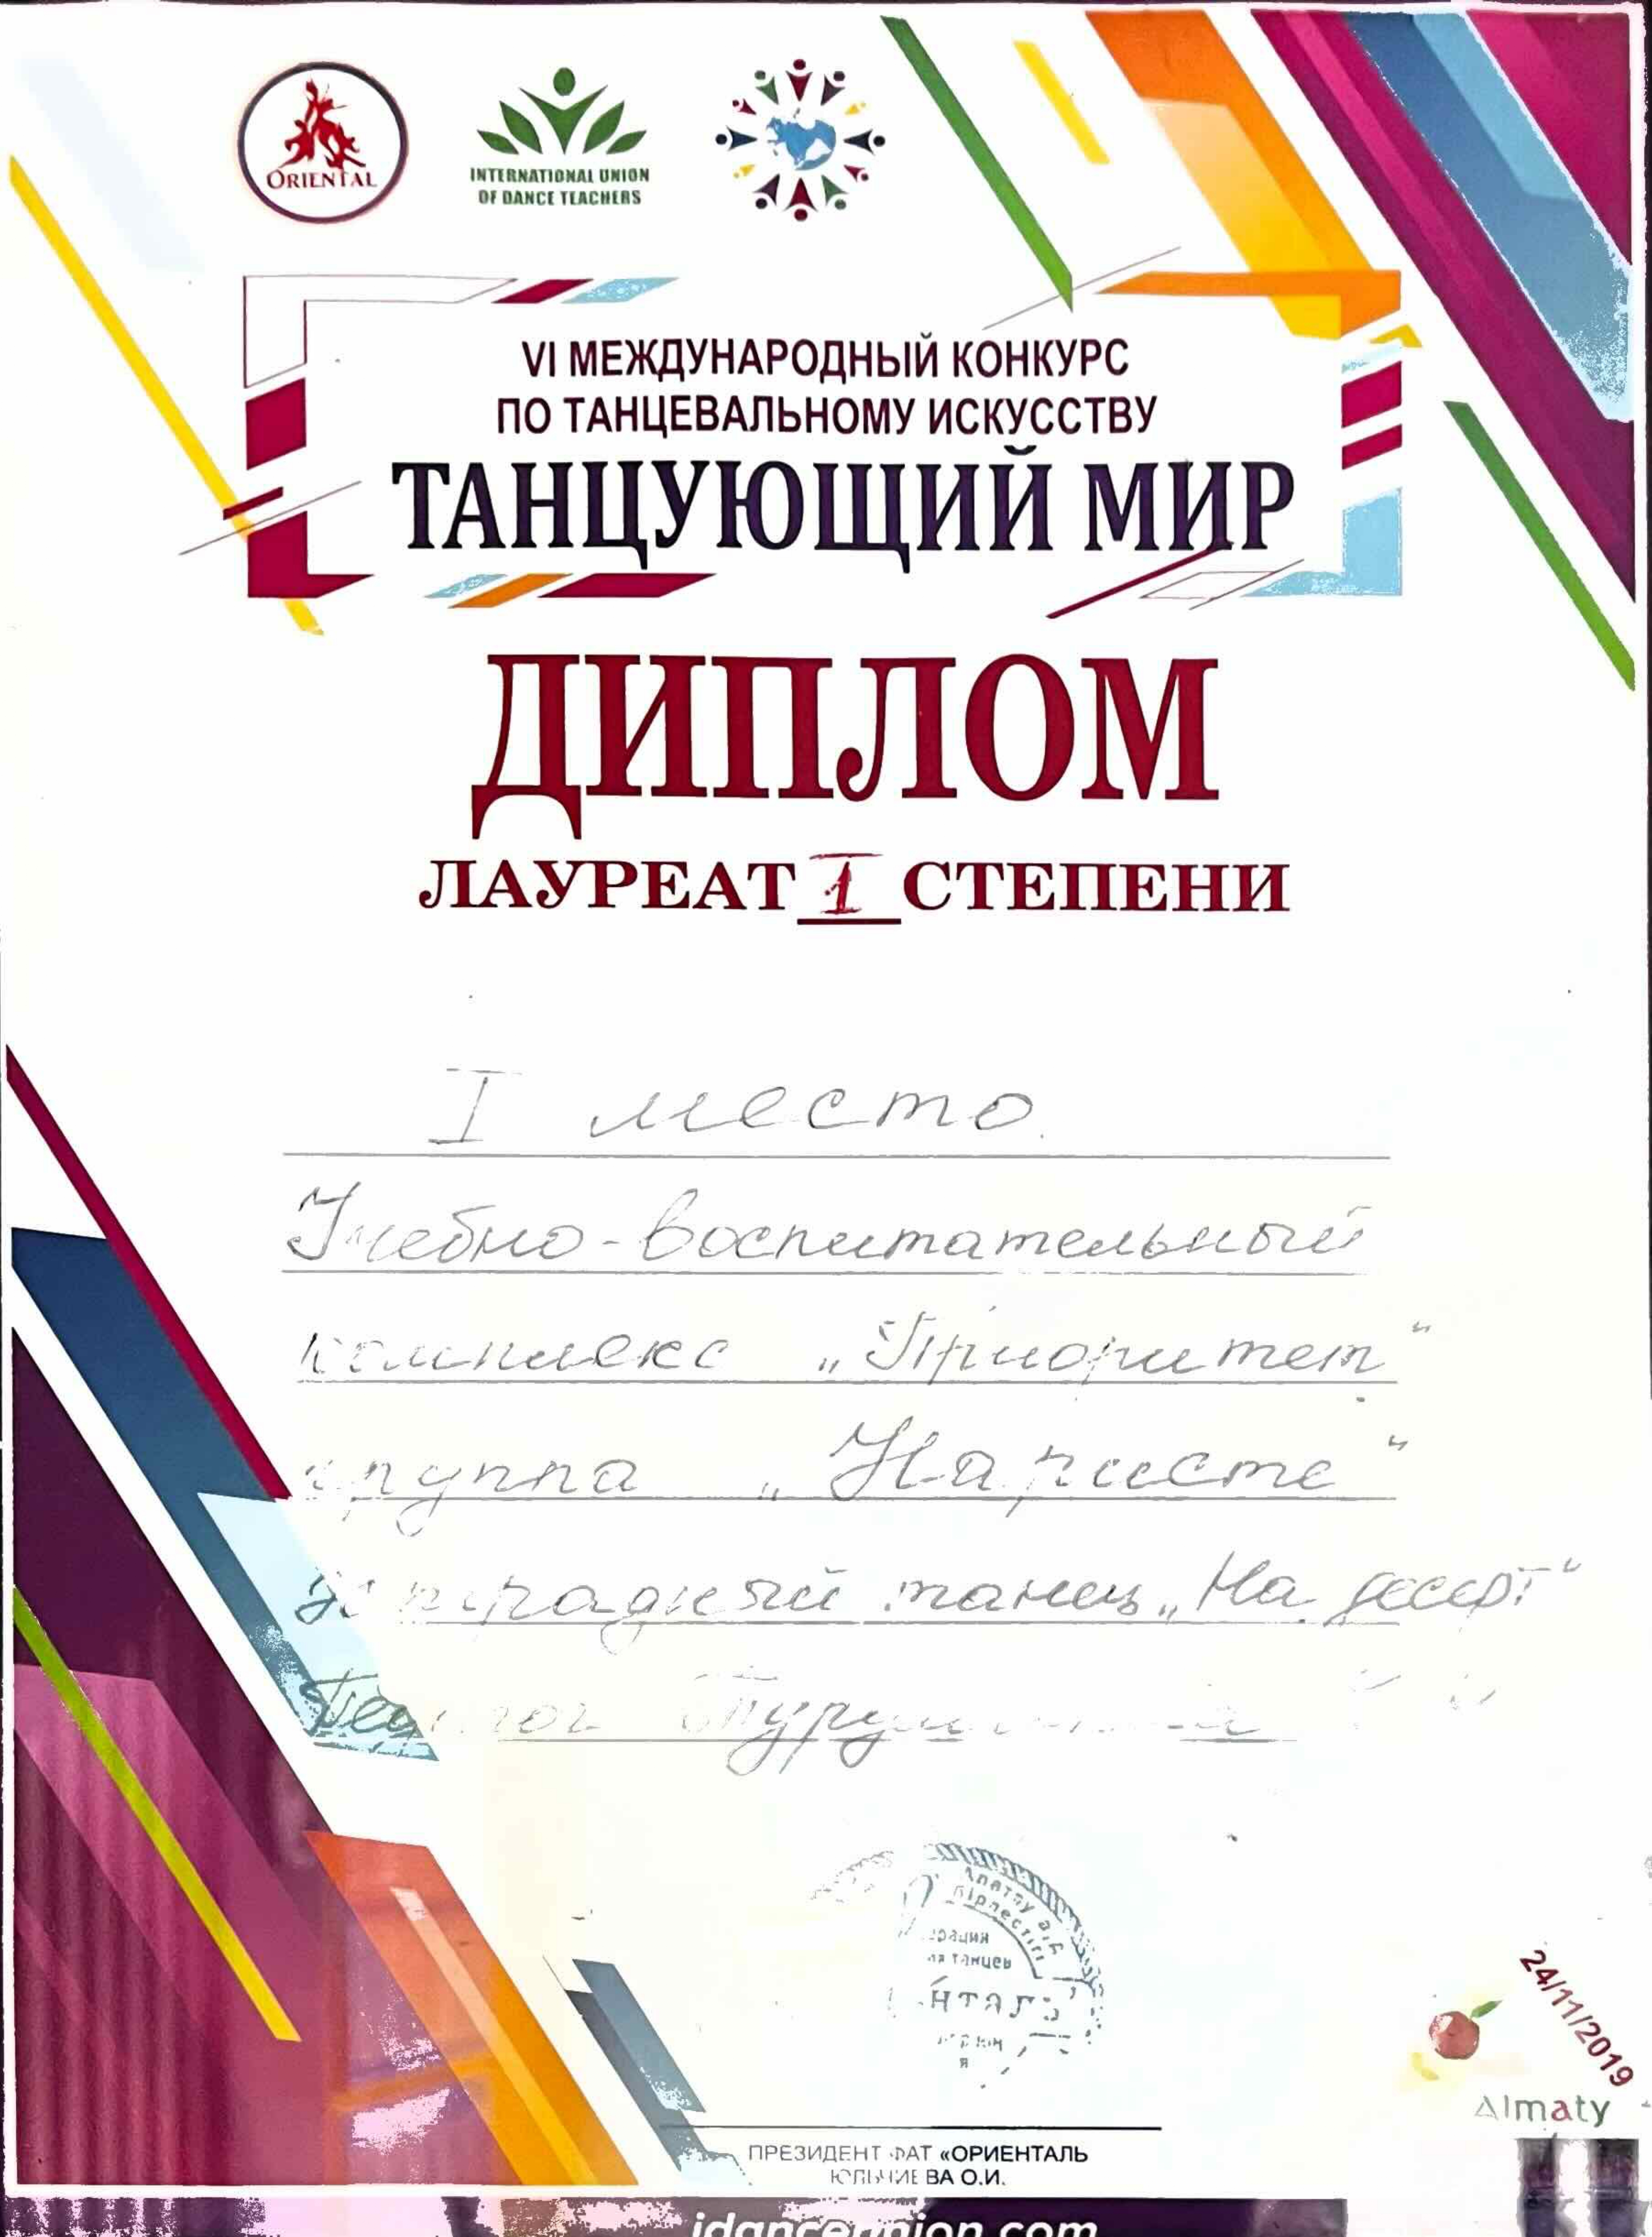 ORIENTAL
INTERNATIONAL UNION
OF DANCE TEACHERS
VI МЕЖДУНАРОДНЫЙ КОНКУРС
ПО ТАНЦЕВАЛЬНОМУ ИСКУССТВУ
ТАНЦУЮЩИЙ МИР
ДИПЛОМ
ЛАУРЕАТ I СТЕПЕНИ
I место
Учебно-воспитательный
комплекс „Приоритет“
группа
эстрадный танец „На десерт“
Педагог
Алатау
танцев
24/11/2019
Almaty
ПРЕЗИДЕНТ ФАТ «ОРИЕНТАЛЬ
О.И.